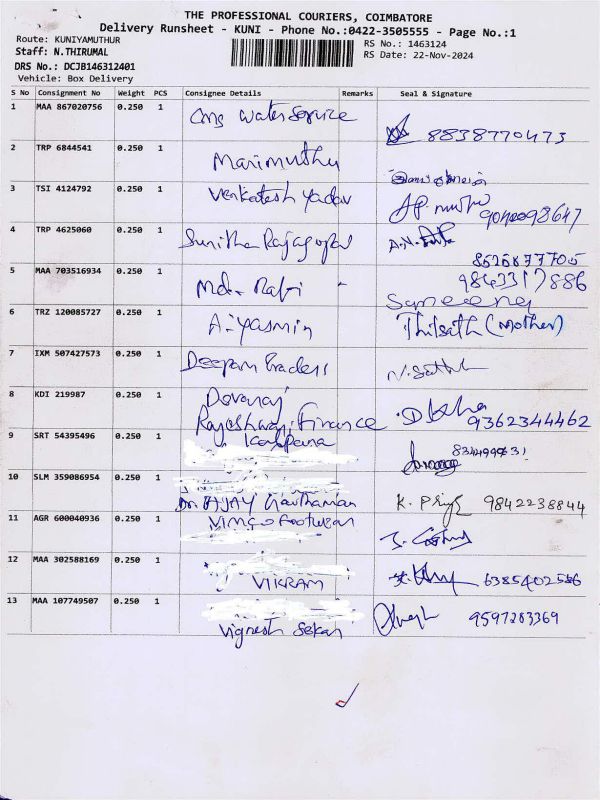 THE PROFESSIONAL COURIERS, COIMBATORE
Delivery Runsheet - KUNI - Phone No.:0422-3505555 - Page No.:1
Route: KUNIYAMUTHUR
RS No.: 1463124
Staff: N.THIRUMAL
RS Date: 22-Nov-2024
DRS No.: DCJB146312401
Vehicle: Box Delivery
S No Consignment No Weight PCS Consignee Details Remarks Seal & Signature
1 MAA 867020756 0.250 1 Cmg Water Service 8838770473
2 TRP 6844541 0.250 1 Marimuthu
3 TSI 4124792 0.250 1 Venkatesh Yadav
4 TRP 4625060 0.250 1 Sunitha Rajagopal
5 MAA 703516934 0.250 1 Md. Rafi - 9843317886
6 TRZ 120085727 0.250 1 A. Yasmin Thilsath (Mother)
7 IXM 507427573 0.250 1 Deepam Traders
8 KDI 219987 0.250 1 Devaraj
Rajeshwari Finance 9362344462
9 SRT 54395496 0.250 1 Kalpana
10 SLM 359086954 0.250 1
Dr. AJAY Gauthaman K. Priya 9842238844
11 AGR 600040936 0.250 1
12 MAA 302588169 0.250 1 VIKRAM 6385402586
13 MAA 107749507 0.250 1 Vignesh Sekar 9597283369